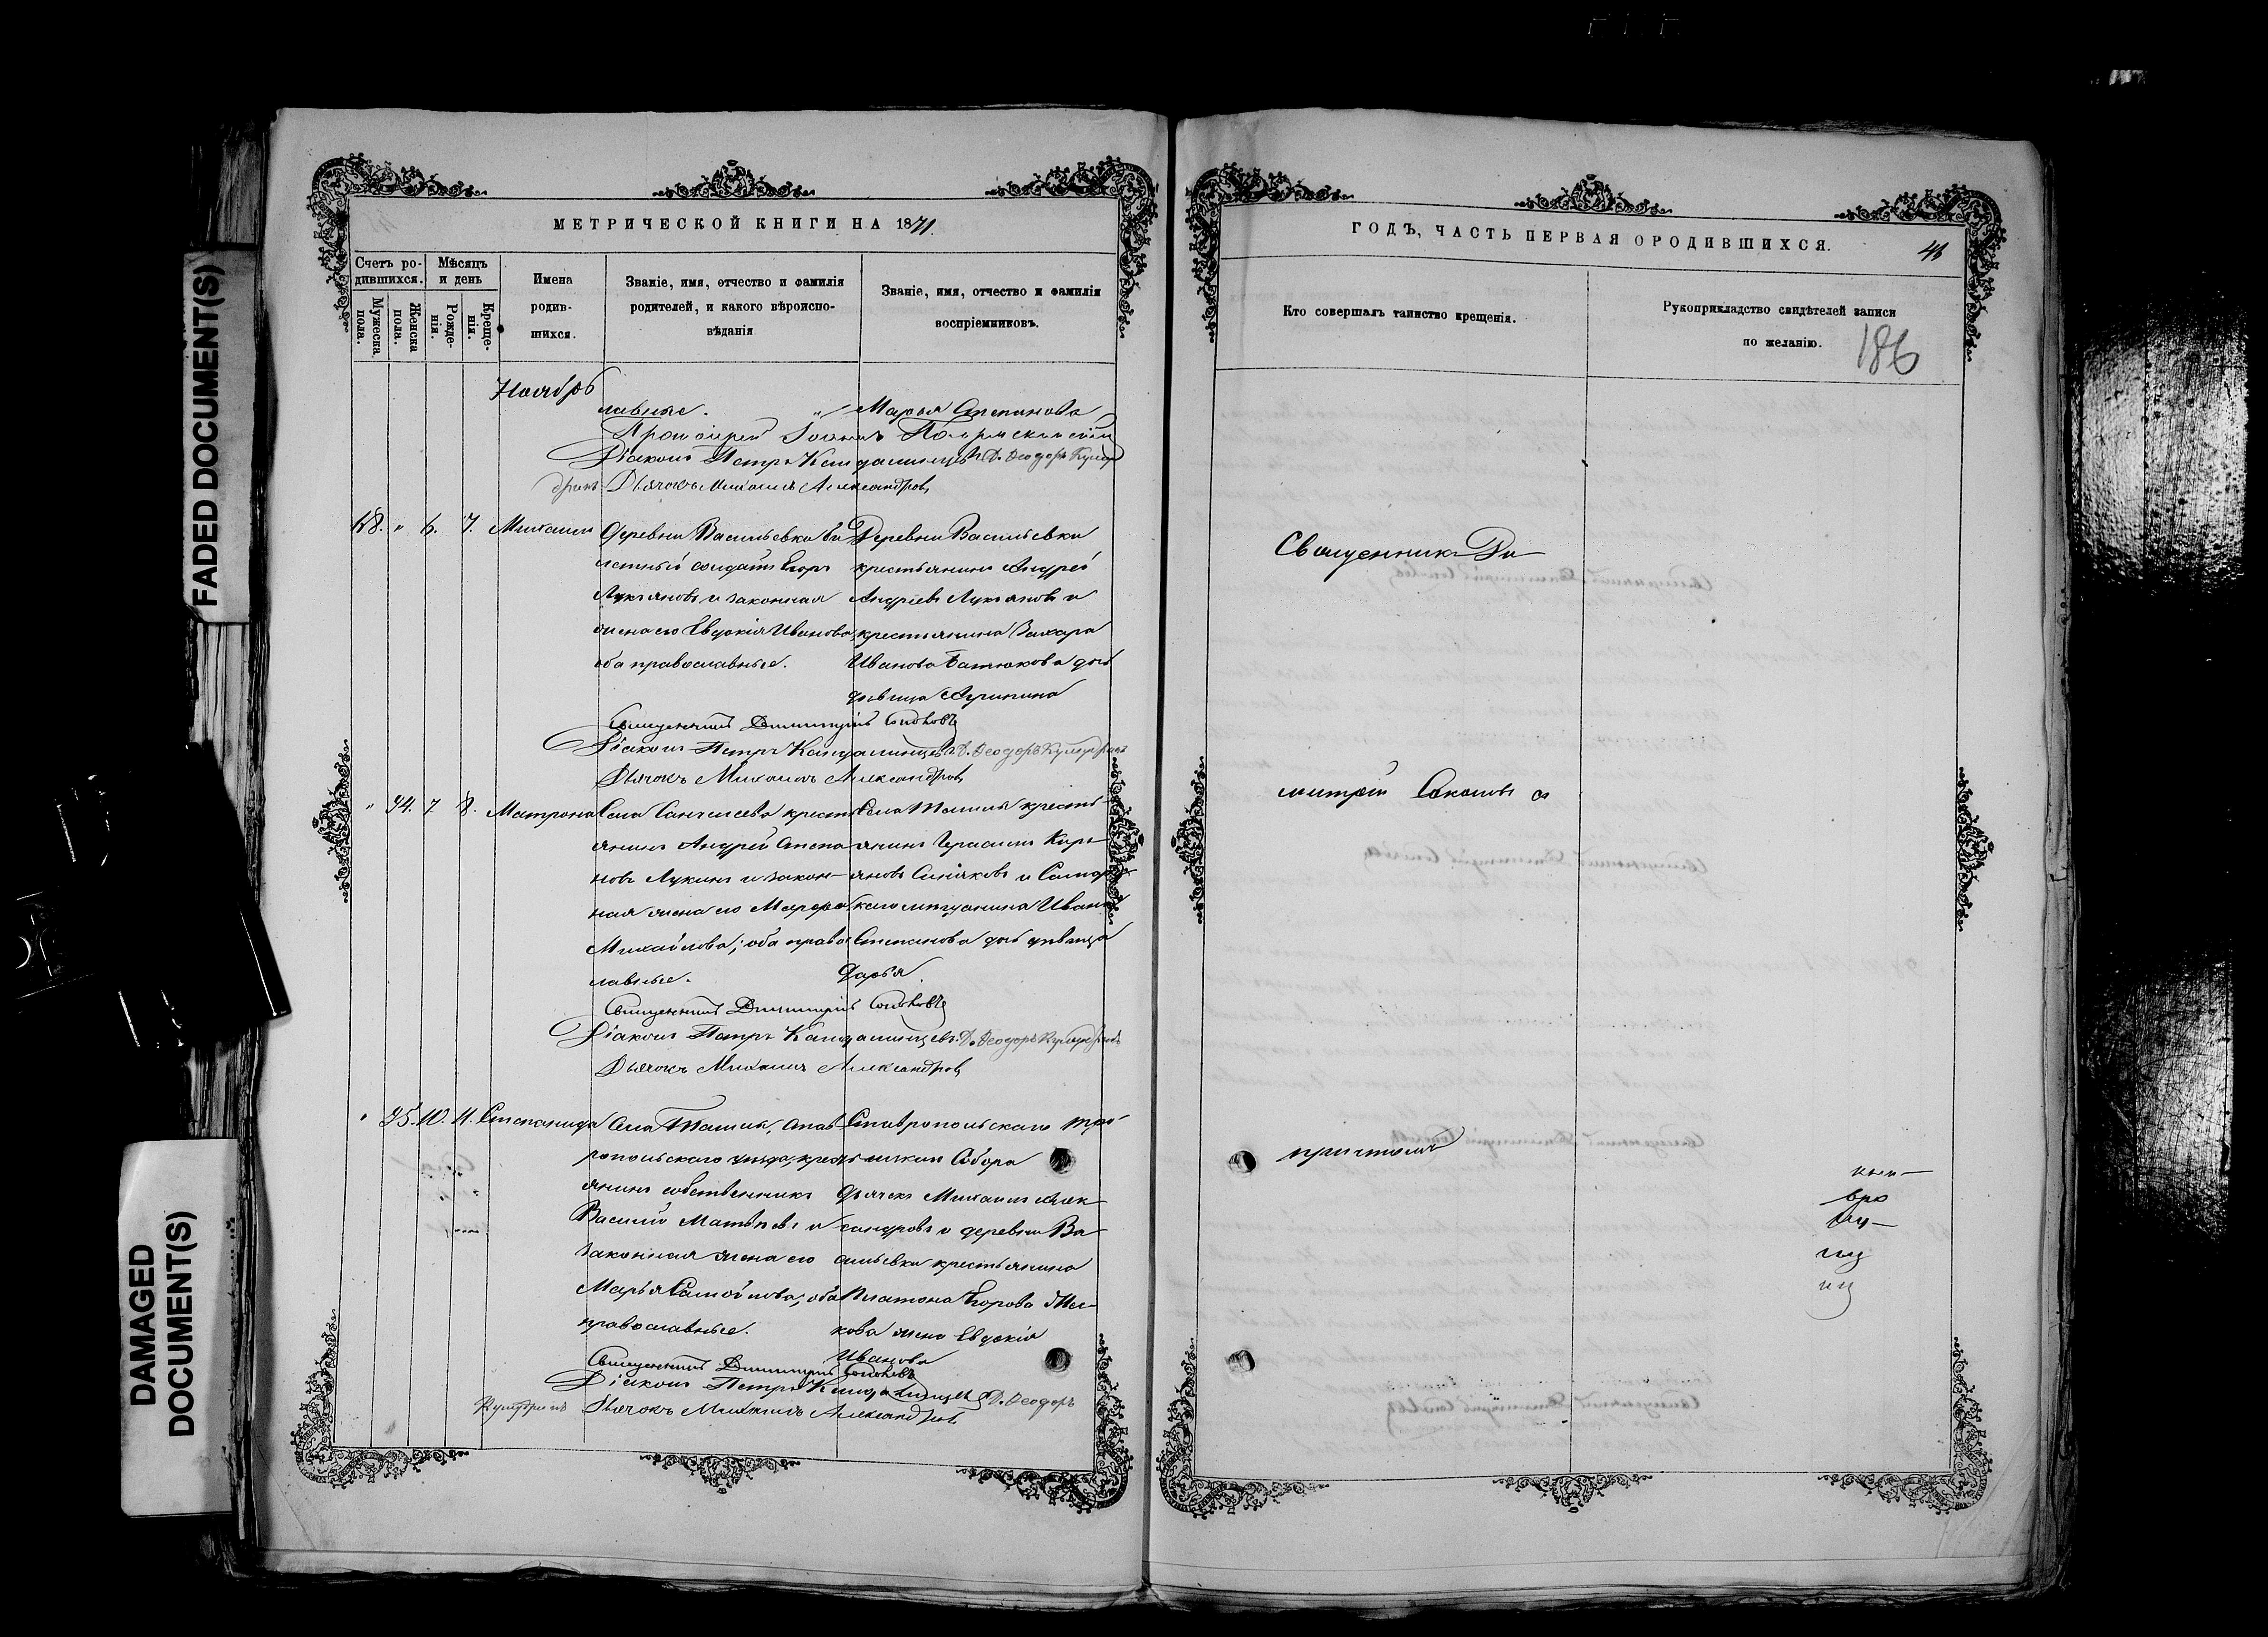 FADED DOCUMENT(S)
DAMAGED
DOCUMENT(S)
МЕТРИЧЕСКОЙ КНИГИ НА 1871.
Счетъ ро-
дившихся.
Мужеска
пола.
Женска
пола.
Мѣсяцъ
и день
Рожде-
нія.
Креще-
нія.
Имена
родив-
шихся.
Званіе, имя, отчество и фамилія
родителей, и какого вѣроиспо-
вѣданія
Званіе, имя, отчество и фамилія
воспріемниковъ.
Ноябрь
лавные. " Марья Степанова
Протоіерей Іоаннъ
Діаконъ Петръ П.Д. Ѳеодоръ
Дьячокъ Михаилъ Александровъ
68. " 6. 7. Михаилъ
Деревни Васильевки би
летный солдатъ Егоръ
Лукьяновъ и законная
жена его Евдокія Иванова
оба православные.
Деревни Васильевки
крестьянинъ Андрей
Андреевъ Лукьяновъ и
крестьянина Захара
Иванова Батюкова дочь
дѣвица Агрипина
Священникъ Димитрій Соколовъ
Діаконъ Петръ П.Д. Ѳеодоръ
Дьячокъ Михаилъ Александровъ
" 94. 7. 8. Матрона
Села Санчелеева кресть
янинъ Андрей Степа
новъ Лукинъ и закон-
ная жена его Марфа
Михайлова; оба правос
лавные.
Села Ташлы кресть-
янинъ Герасимъ Кирь-
яновъ Синяковъ и Самар-
скаго мѣщанина Ивана
Степанова дочь дѣвица
Дарья.
Священникъ Димитрій Соколовъ
Діаконъ Петръ П.Д. Ѳеодоръ
Дьячокъ Михаилъ Александровъ
" 95. 10. 11. Степанида
Села Ташлы, Став-
ропольскаго уѣзда, кресть
янинъ собственникъ
Василій Матвѣевъ и
законная жена его
Марья Самойлова; оба
православные.
Ставропольскаго Трои
цкаго Собора
дьячекъ Михаилъ Алек
сандровъ и деревни Ва-
сильевки крестьянина
Платона Егорова
кова жена Евдокія
Иванова
Священникъ Димитрій Соколовъ
Діаконъ Петръ П.Д. Ѳеодоръ
Дьячокъ Михаилъ Александровъ
ГОДЪ, ЧАСТЬ ПЕРВАЯ О РОДИВШИХСЯ.
Кто совершалъ таинство крещенія.
Рукоприкладство свидѣтелей записи
по желанію.
186
Священникъ Ди
митрій Соколовъ съ